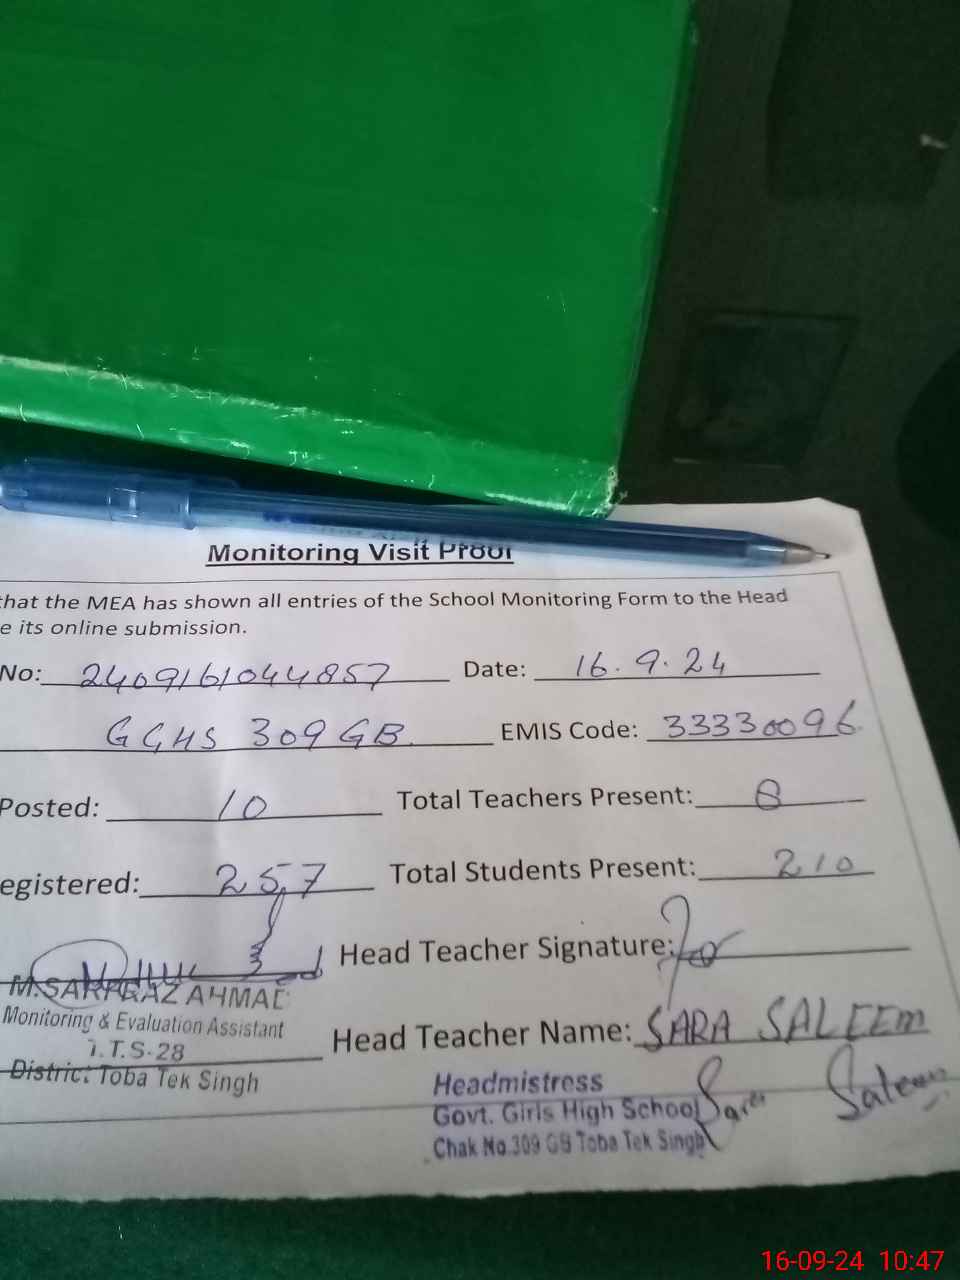 Monitoring Visit Proof
that the MEA has shown all entries of the School Monitoring Form to the Head
e its online submission.
No: 2409161044857 Date: 16.9.24
GGHS 309 GB. EMIS Code: 33330096
Posted: 10 Total Teachers Present: 8
egistered: 257 Total Students Present: 210
Head Teacher Signature:
M. SARFRAZ AHMAD
Monitoring & Evaluation Assistant
T.T.S-28
District Toba Tek Singh
Head Teacher Name: SARA SALEEM
Headmistress
Govt. Girls High School
Chak No.309 GB Toba Tek Singh
Sara Saleem
16-09-24 10:47